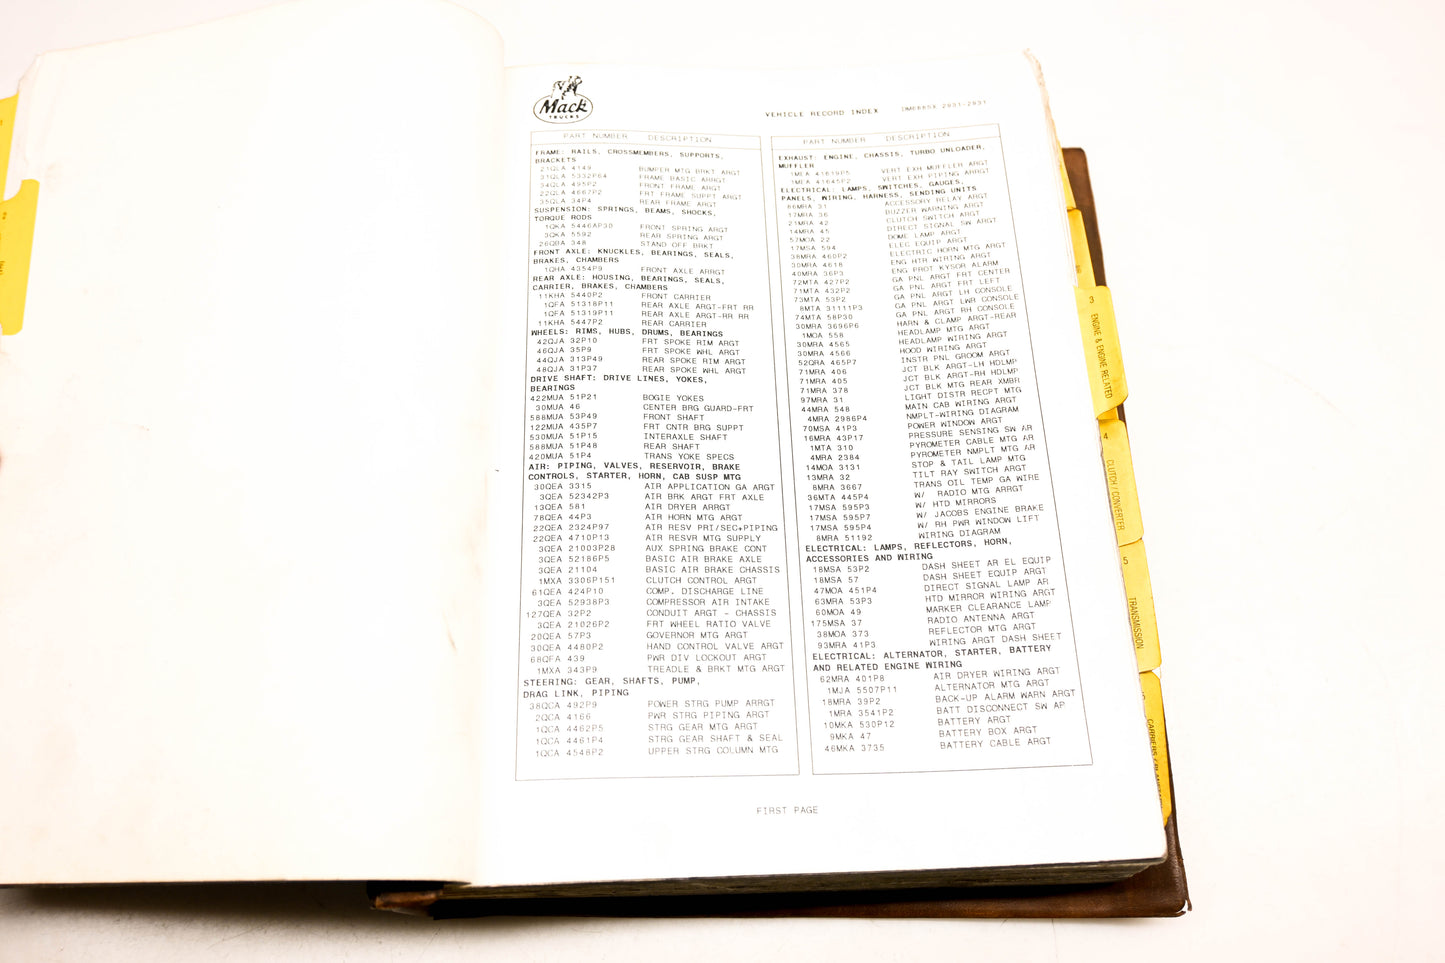 Mack
TRUCKS
VEHICLE RECORD INDEX DM6865X 2931-2931
PART NUMBER DESCRIPTION
FRAME: RAILS, CROSSMEMBERS, SUPPORTS,
BRACKETS
21QLA 4149 BUMPER MTG BRKT ARGT
31QLA 5332P64 FRAME BASIC ARRGT
34QLA 495P2 FRONT FRAME ARGT
22QLA 4667P2 FRT FRAME SUPPT ARGT
35QLA 34P4 REAR FRAME ARGT
SUSPENSION: SPRINGS, BEAMS, SHOCKS,
TORQUE RODS
1QKA 5446AP30 FRONT SPRING ARGT
3QKA 5592 REAR SPRING ARGT
26QBA 348 STAND OFF BRKT
FRONT AXLE: KNUCKLES, BEARINGS, SEALS,
BRAKES, CHAMBERS
1QHA 4354P9 FRONT AXLE ARRGT
REAR AXLE: HOUSING, BEARINGS, SEALS,
CARRIER, BRAKES, CHAMBERS
11KHA 5440P2 FRONT CARRIER
1QFA 51318P11 REAR AXLE ARGT-FRT RR
1QFA 51319P11 REAR AXLE ARGT-RR RR
11KHA 5447P2 REAR CARRIER
WHEELS: RIMS, HUBS, DRUMS, BEARINGS
42QJA 32P10 FRT SPOKE RIM ARGT
46QJA 35P9 FRT SPOKE WHL ARGT
44QJA 313P49 REAR SPOKE RIM ARGT
48QJA 31P37 REAR SPOKE WHL ARGT
DRIVE SHAFT: DRIVE LINES, YOKES,
BEARINGS
422MUA 51P21 BOGIE YOKES
30MUA 46 CENTER BRG GUARD-FRT
588MUA 53P49 FRONT SHAFT
122MUA 435P7 FRT CNTR BRG SUPPT
530MUA 51P15 INTERAXLE SHAFT
588MUA 51P48 REAR SHAFT
420MUA 51P4 TRANS YOKE SPECS
AIR: PIPING, VALVES, RESERVOIR, BRAKE
CONTROLS, STARTER, HORN, CAB SUSP MTG
30QEA 3315 AIR APPLICATION GA ARGT
3QEA 52342P3 AIR BRK ARGT FRT AXLE
13QEA 581 AIR DRYER ARRGT
78QEA 44P3 AIR HORN MTG ARGT
22QEA 2324P97 AIR RESV PRI/SEC+PIPING
22QEA 4710P13 AIR RESVR MTG SUPPLY
3QEA 21003P28 AUX SPRING BRAKE CONT
3QEA 52186P5 BASIC AIR BRAKE AXLE
3QEA 21104 BASIC AIR BRAKE CHASSIS
1MXA 3306P151 CLUTCH CONTROL ARGT
61QEA 424P10 COMP. DISCHARGE LINE
3QEA 52938P3 COMPRESSOR AIR INTAKE
127QEA 32P2 CONDUIT ARGT - CHASSIS
3QEA 21026P2 FRT WHEEL RATIO VALVE
20QEA 57P3 GOVERNOR MTG ARGT
30QEA 4480P2 HAND CONTROL VALVE ARGT
68QFA 439 PWR DIV LOCKOUT ARGT
1MXA 343P9 TREADLE & BRKT MTG ARGT
STEERING: GEAR, SHAFTS, PUMP,
DRAG LINK, PIPING
38QCA 492P9 POWER STRG PUMP ARRGT
2QCA 4166 PWR STRG PIPING ARGT
1QCA 4462P5 STRG GEAR MTG ARGT
1QCA 4461P4 STRG GEAR SHAFT & SEAL
1QCA 4548P2 UPPER STRG COLUMN MTG
PART NUMBER DESCRIPTION
EXHAUST: ENGINE, CHASSIS, TURBO UNLOADER,
MUFFLER
1MEA 41619P5 VERT EXH MUFFLER ARGT
1MEA 41645P2 VERT EXH PIPING ARRGT
ELECTRICAL: LAMPS, SWITCHES, GAUGES,
PANELS, WIRING, HARNESS, SENDING UNITS
66MRA 31 ACCESSORY RELAY ARGT
17MRA 36 BUZZER WARNING ARGT
21MRA 42 CLUTCH SWITCH ARGT
14MRA 45 DIRECT SIGNAL SW ARGT
57MOA 22 DOME LAMP ARGT
17MSA 594 ELEC EQUIP ARGT
38MRA 460P2 ELECTRIC HORN MTG ARGT
30MRA 4618 ENG HTR WIRING ARGT
40MRA 36P3 ENG PROT KYSOR ALARM
72MTA 427P2 GA PNL ARGT FRT CENTER
71MTA 432P2 GA PNL ARGT FRT LEFT
73MTA 53P2 GA PNL ARGT LH CONSOLE
8MTA 31111P3 GA PNL ARGT LWR CONSOLE
74MTA 58P30 GA PNL ARGT RH CONSOLE
30MRA 3696P6 HARN & CLAMP ARGT-REAR
1MOA 558 HEADLAMP MTG ARGT
30MRA 4565 HEADLAMP WIRING ARGT
30MRA 4566 HOOD WIRING ARGT
52QRA 465P7 INSTR PNL GROOM ARGT
71MRA 406 JCT BLK ARGT-LH HDLMP
71MRA 405 JCT BLK ARGT-RH HDLMP
71MRA 378 JCT BLK MTG REAR XMBR
97MRA 31 LIGHT DISTR RECPT MTG
44MRA 548 MAIN CAB WIRING ARGT
4MRA 2986P4 NMPLT-WIRING DIAGRAM
70MSA 41P3 POWER WINDOW ARGT
16MRA 43P17 PRESSURE SENSING SW AR
1MTA 310 PYROMETER CABLE MTG AR
4MRA 2384 PYROMETER NMPLT MTG AR
14MOA 3131 STOP & TAIL LAMP MTG
13MRA 32 TILT RAY SWITCH ARGT
8MRA 3667 TRANS OIL TEMP GA WIRE
36MTA 445P4 W/ RADIO MTG ARRGT
17MSA 595P3 W/ HTD MIRRORS
17MSA 595P7 W/ JACOBS ENGINE BRAKE
17MSA 595P4 W/ RH PWR WINDOW LIFT
8MRA 51192 WIRING DIAGRAM
ELECTRICAL: LAMPS, REFLECTORS, HORN,
ACCESSORIES AND WIRING
18MSA 53P2 DASH SHEET AR EL EQUIP
18MSA 57 DASH SHEET EQUIP ARGT
47MOA 451P4 DIRECT SIGNAL LAMP AR
63MRA 53P3 HTD MIRROR WIRING ARGT
60MOA 49 MARKER CLEARANCE LAMP
175MSA 37 RADIO ANTENNA ARGT
38MOA 373 REFLECTOR MTG ARGT
93MRA 41P3 WIRING ARGT DASH SHEET
ELECTRICAL: ALTERNATOR, STARTER, BATTERY
AND RELATED ENGINE WIRING
62MRA 401P8 AIR DRYER WIRING ARGT
1MJA 5507P11 ALTERNATOR MTG ARGT
18MRA 39P2 BACK-UP ALARM WARN ARGT
1MRA 3541P2 BATT DISCONNECT SW AR
10MKA 530P12 BATTERY ARGT
9MKA 47 BATTERY BOX ARGT
46MKA 3735 BATTERY CABLE ARGT
FIRST PAGE
3
ENGINE & ENGINE RELATED
4
CLUTCH / CONVERTER
5
TRANSMISSION
2